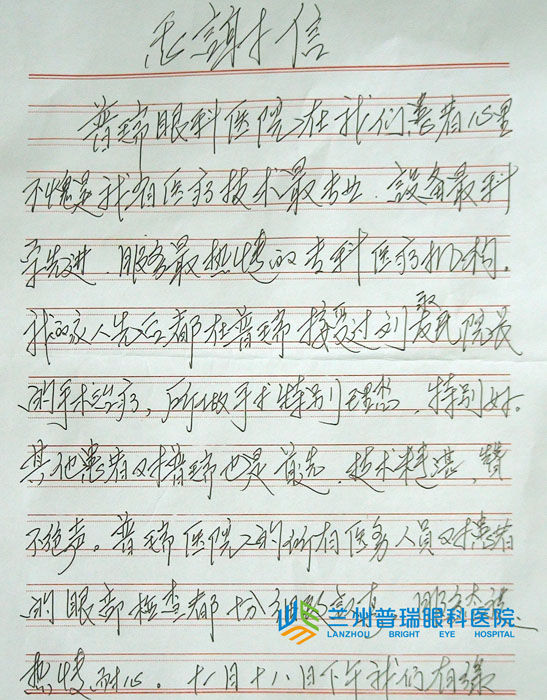 感謝信
普瑞眼科医院在我们患者心里
不愧是我省医疗技术最专业、設备最科
学先进、服务最热情的专科医疗机构。
我的家人先后都在普瑞接受过刘敬民院長
的手术治疗，所做手术特别理想，特别好。
其他患者对普瑞也是首选，技术精湛，贊
不绝声。普瑞医院的所有医务人员对患者
的眼部检查都十分
兰州普瑞眼科医院
LANZHOU BRIGHT EYE HOSPITAL
热情、耐心。十月十八日下午我们在